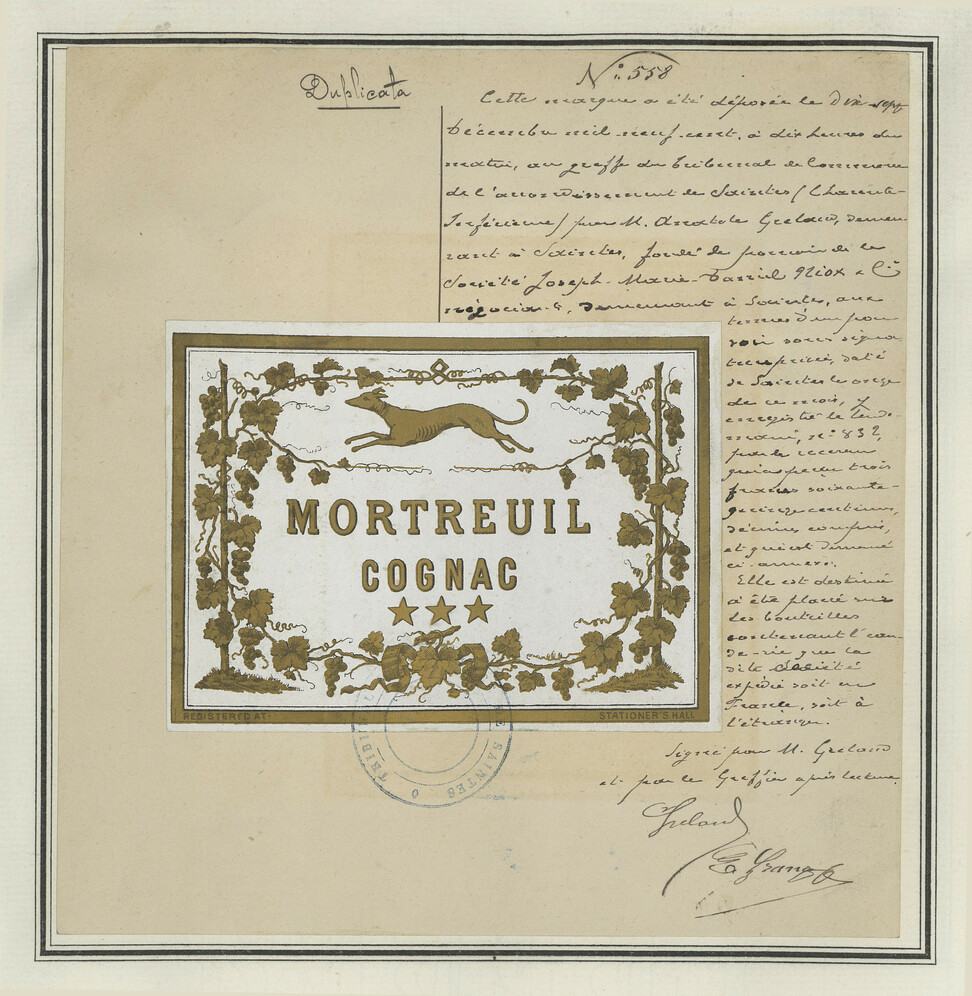 Duplicata
N°: 558
Cette marque a été déposée le Dix-sept
Décembre mil-neuf-cent, à dix heures du
matin, au greffe du Tribunal de Commerce
de l'arrondissement de Saintes (Charente-
Inférieure) par M. Anatole Grelaud, demeu
rant à Saintes, fondé de pouvoir de la
Société Joseph-Marie-Daniel & Cie
négociants, demeurant à Saintes, aux
termes d'un pou
voir sous signa
ture privée, daté
de Saintes le onze
de ce mois, y
enregistré le lende-
main, n° 832,
par le receveur
qui a perçu trois
francs soixante-
quinze centimes,
décimes compris,
et qui est demeuré
ci-annexé.
Elle est destinée
à être placée sur
les bouteilles
contenant l'eau-
de-vie que la
dite Société
expédie soit en
France, soit à
l'étranger.
Signé par M. Grelaud
et par le Greffier après lecture.
Grelaud
MORTREUIL
COGNAC
REGISTERED AT
STATIONER'S HALL
SAINTES